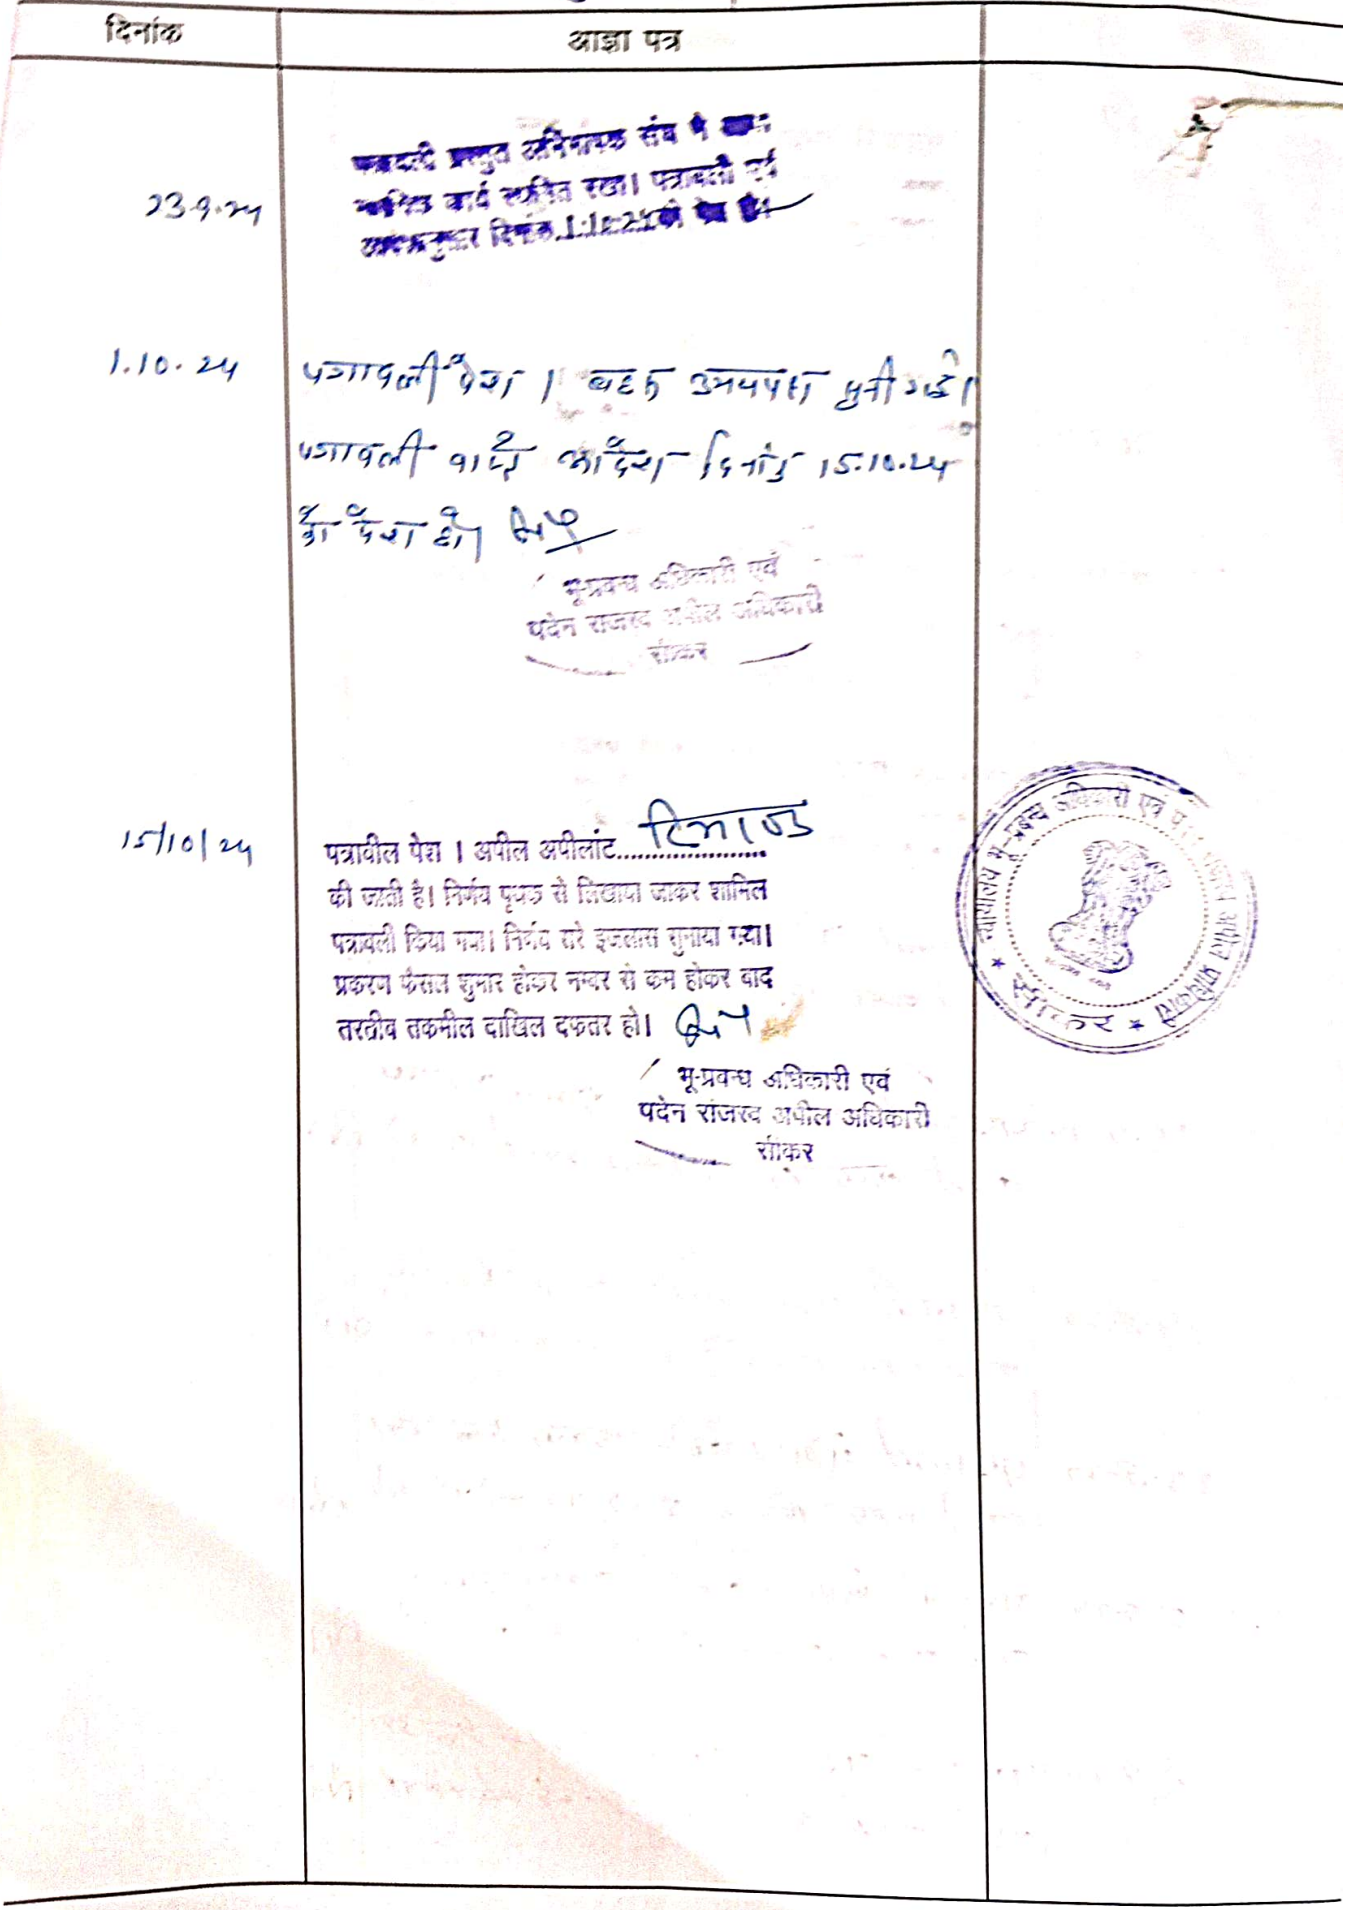 दिनांक
आज्ञा पत्र
23.9.24
पत्रावली प्रस्तुत अभिभाषक संघ ने
कार्य स्थगित रखा। पत्रावली पूर्व
आदेशानुसार दिनांक 1.10.24 को पेश हो।
1.10.24
पत्रावली पेश । बहस उभयपक्ष सुनी गई।
पत्रावली वास्ते आदेश दिनांक 15.10.24
को पेश हो।
भू-प्रबन्ध अधिकारी एवं
पदेन राजस्व अपील अधिकारी
सीकर
15/10/24
पत्रावील पेश । अपील अपीलांट......................
की जाती है। निर्णय पृथक से लिखाया जाकर शामिल
पत्रावली किया गया। निर्णय सरे इजलास सुनाया गया।
प्रकरण फैसल शुमार होकर नम्बर से कम होकर बाद
तरतीब तकमील दाखिल दफतर हो।
भू-प्रबन्ध अधिकारी एवं
पदेन राजस्व अपील अधिकारी
सीकर
न्यायालय भू-प्रबन्ध अधिकारी एवं अपील प्राधिकारी
★ सीकर ★